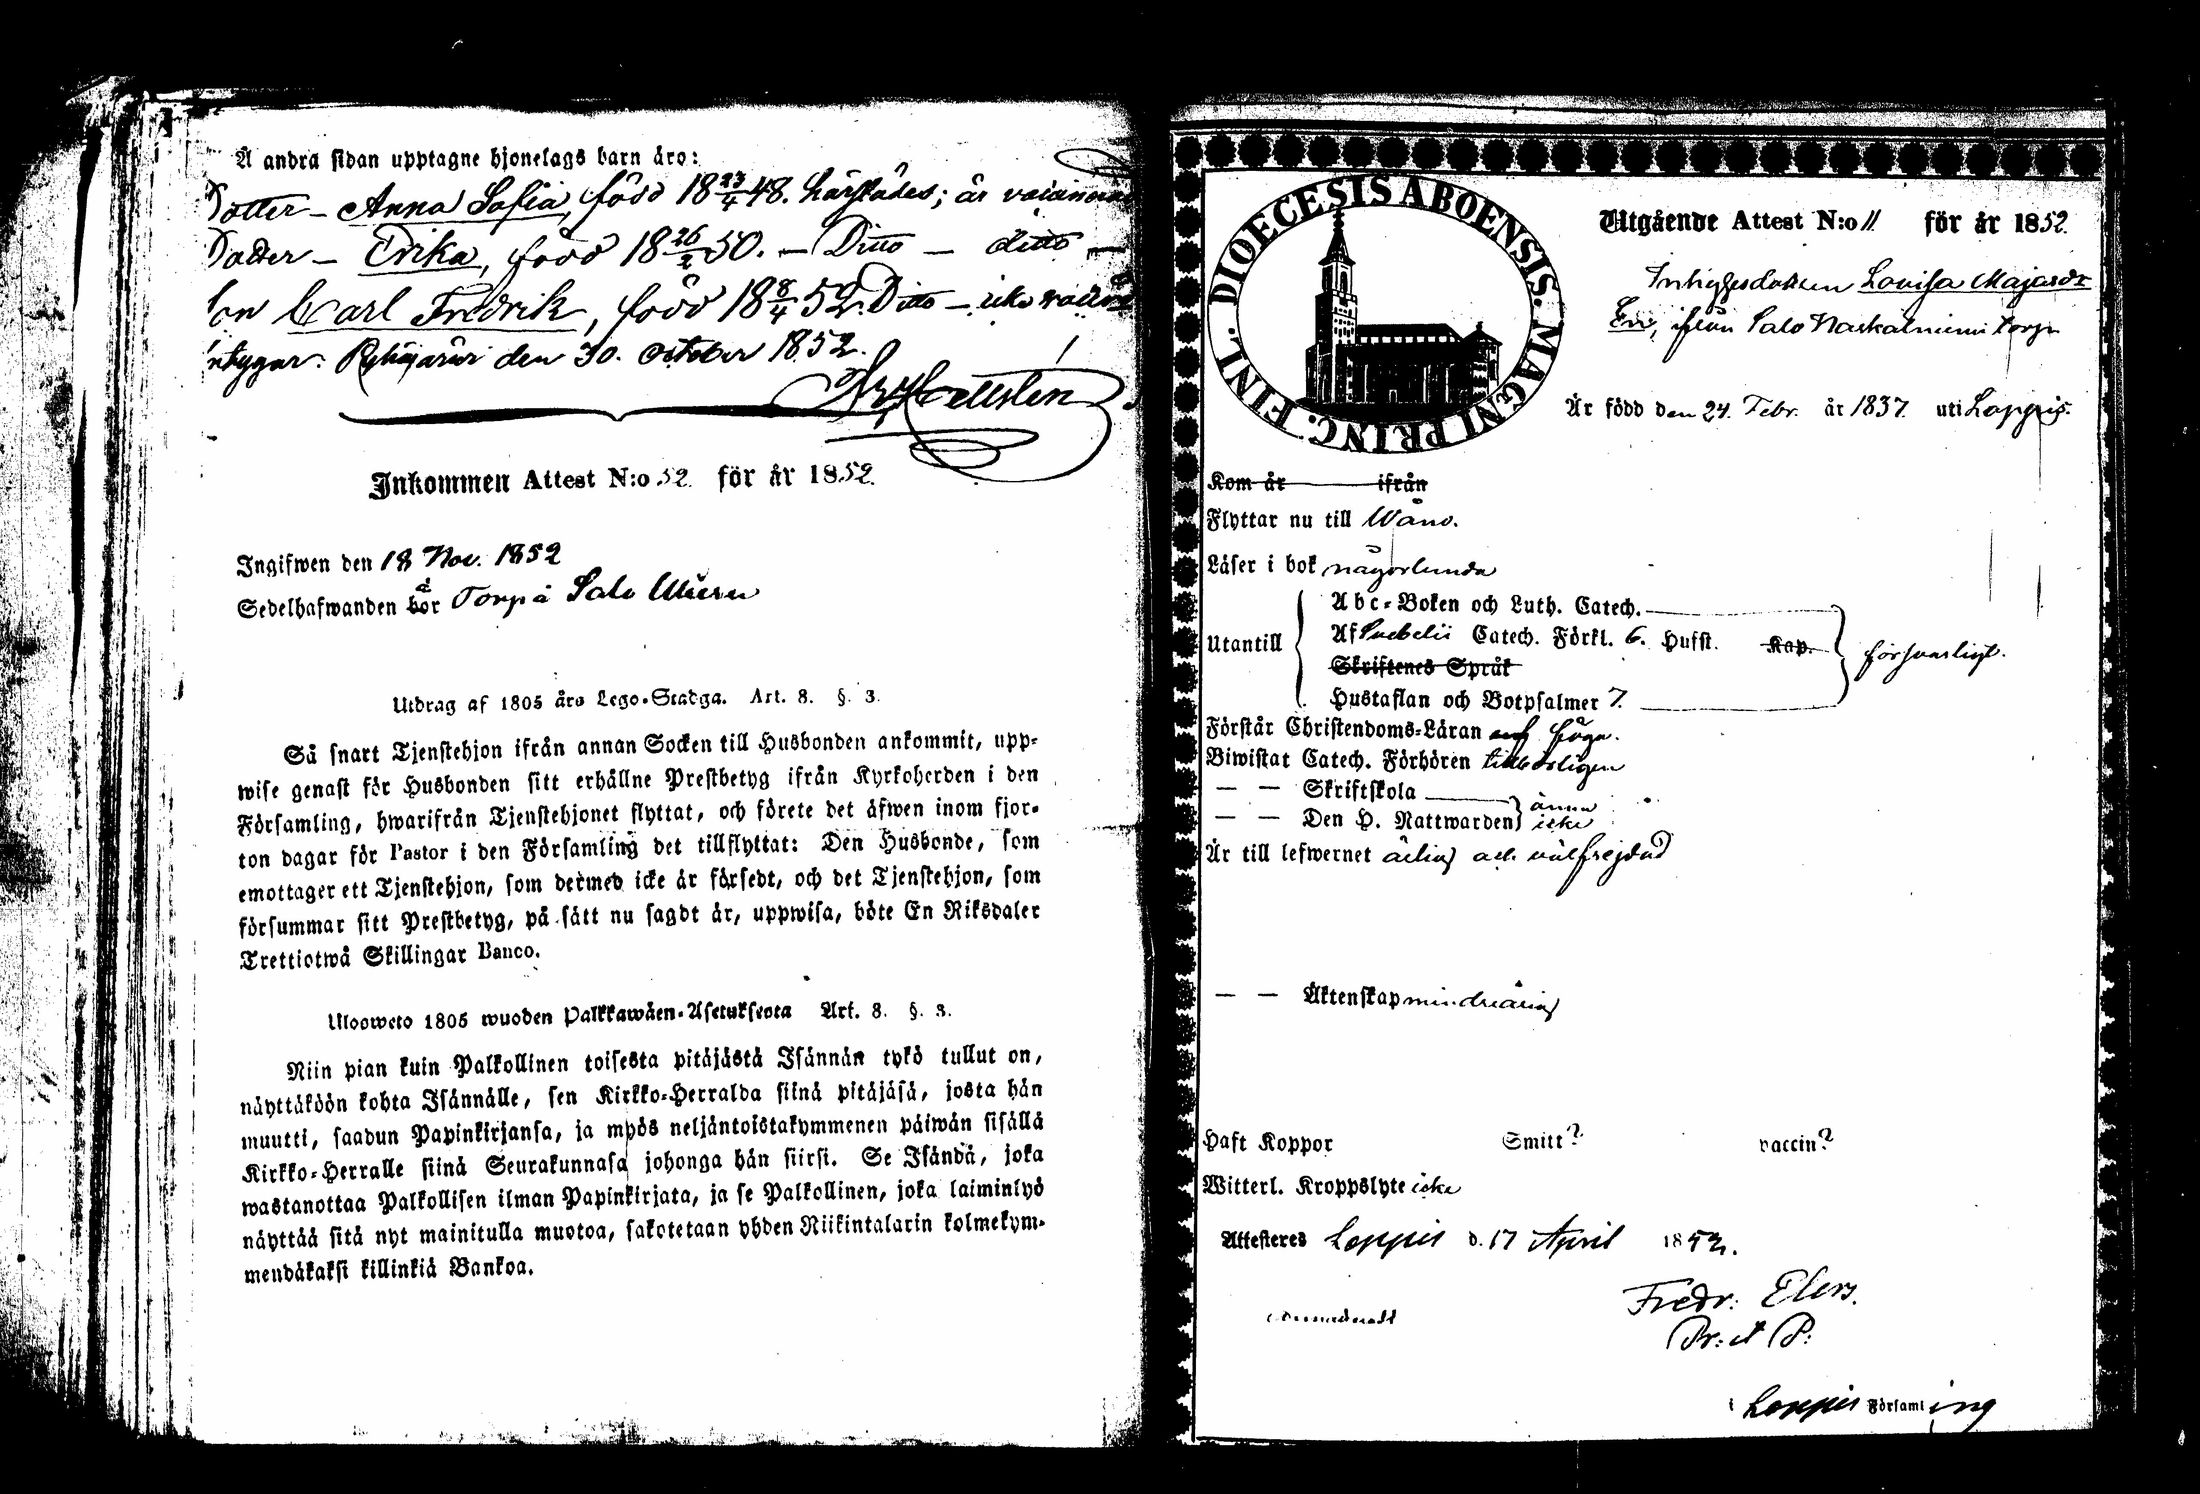 Å andra sidan upptagne hjonelags barn äro:
Dotter – Anna Sofia, född 18 23/4 48. härstädes; är
Dotter – Erika, född 18 26/2 50. – Ditto – ditto –
Son Carl Fredrik, född 18 8/4 52. Ditto – icke
intygar: den 30. October 1852.
Inkommen Attest N:o 52. för år 1852.
Ingifwen den 18 Nov. 1852
Sedelhafwanden bor å Torp å Salo
Utdrag af 1805 års Lego-Stadga. Art. 8. §. 3.
Så snart Tjenstehjon ifrån annan Socken till Husbonden ankommit, upp-
wise genast för Husbonden sitt erhållne Prestbetyg ifrån Kyrkoherden i den
Församling, hwarifrån Tjenstehjonet flyttat, och förete det äfwen inom fjor-
ton dagar för Pastor i den Församling det tillflyttat: Den Husbonde, som
emottager ett Tjenstehjon, som dermed icke är försedt, och det Tjenstehjon, som
försummar sitt Prestbetyg, på sätt nu sagdt är, uppwisa, böte En Riksdaler
Trettiotwå Skillingar Banco.
Uloosweto 1805 wuoden Palkkawäen-Asetuksesta Art. 8. §. 3.
Niin pian kuin Palkollinen toisesta pitäjästä Isännän tykö tullut on,
näyttäköön kohta Isännälle, sen Kirkko-Herralda siinä pitäjäsä, josta hän
muutti, saadun Papinkirjansa, ja myös neljäntoistakymmenen päiwän sisällä
Kirkko-Herralle siinä Seurakunnasa johonga hän siirsi. Se Isändä, joka
wastanottaa Palkollisen ilman Papinkirjata, ja se Palkollinen, joka laiminlyö
näyttää sitä nyt mainitulla muotoa, sakotetaan yhden Riikintalarin kolmekym-
mendäkaksi killinkiä Bankoa.
DIOECESIS ABOENSIS. MAGNI PRINC. FINL.
Utgående Attest N:o 11 för år 1852.
Inhysesdottren Lovisa
ifrån Salo torp
Är född den 24. Febr. år 1837. uti Loppis.
Kom år ifrån
Flyttar nu till Wånå.
Läser i bok någorlunda
Abc-Boken och Luth. Catech.
Utantill Af Svebelii Catech. Förkl. 6. Hufst. Kap. försvarligt.
Skriftenes Språk
Hustaflan och Botpsalmer 7.
Förstår Christendoms-Läran föga.
Biwistat Catech. Förhören tillbörligen
— — Skriftskola ännu
— — Den H. Nattwarden icke
Är till lefwernet ärlig och välfrejdad
— — Äktenskap minderårig
Haft Koppor Smitt? vaccin?
Witterl. Kroppslyte icke
Attesteres Loppis d. 17 April 1852.
Fredr: Elers.
Pr: et P:
i Loppis Församling